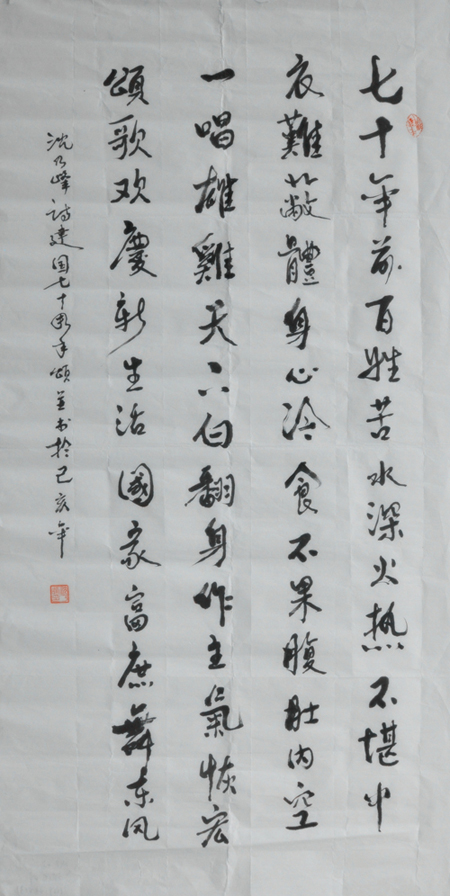 七十年前百姓苦水深火热不堪中
衣難蔽體身心冷食不果腹肚内空
一唱雄雞天下白翻身作主氣恢宏
頌歌欢慶新生活國家富庶舞东风
沈乃峰诗建国七十周年頌並书於己亥年